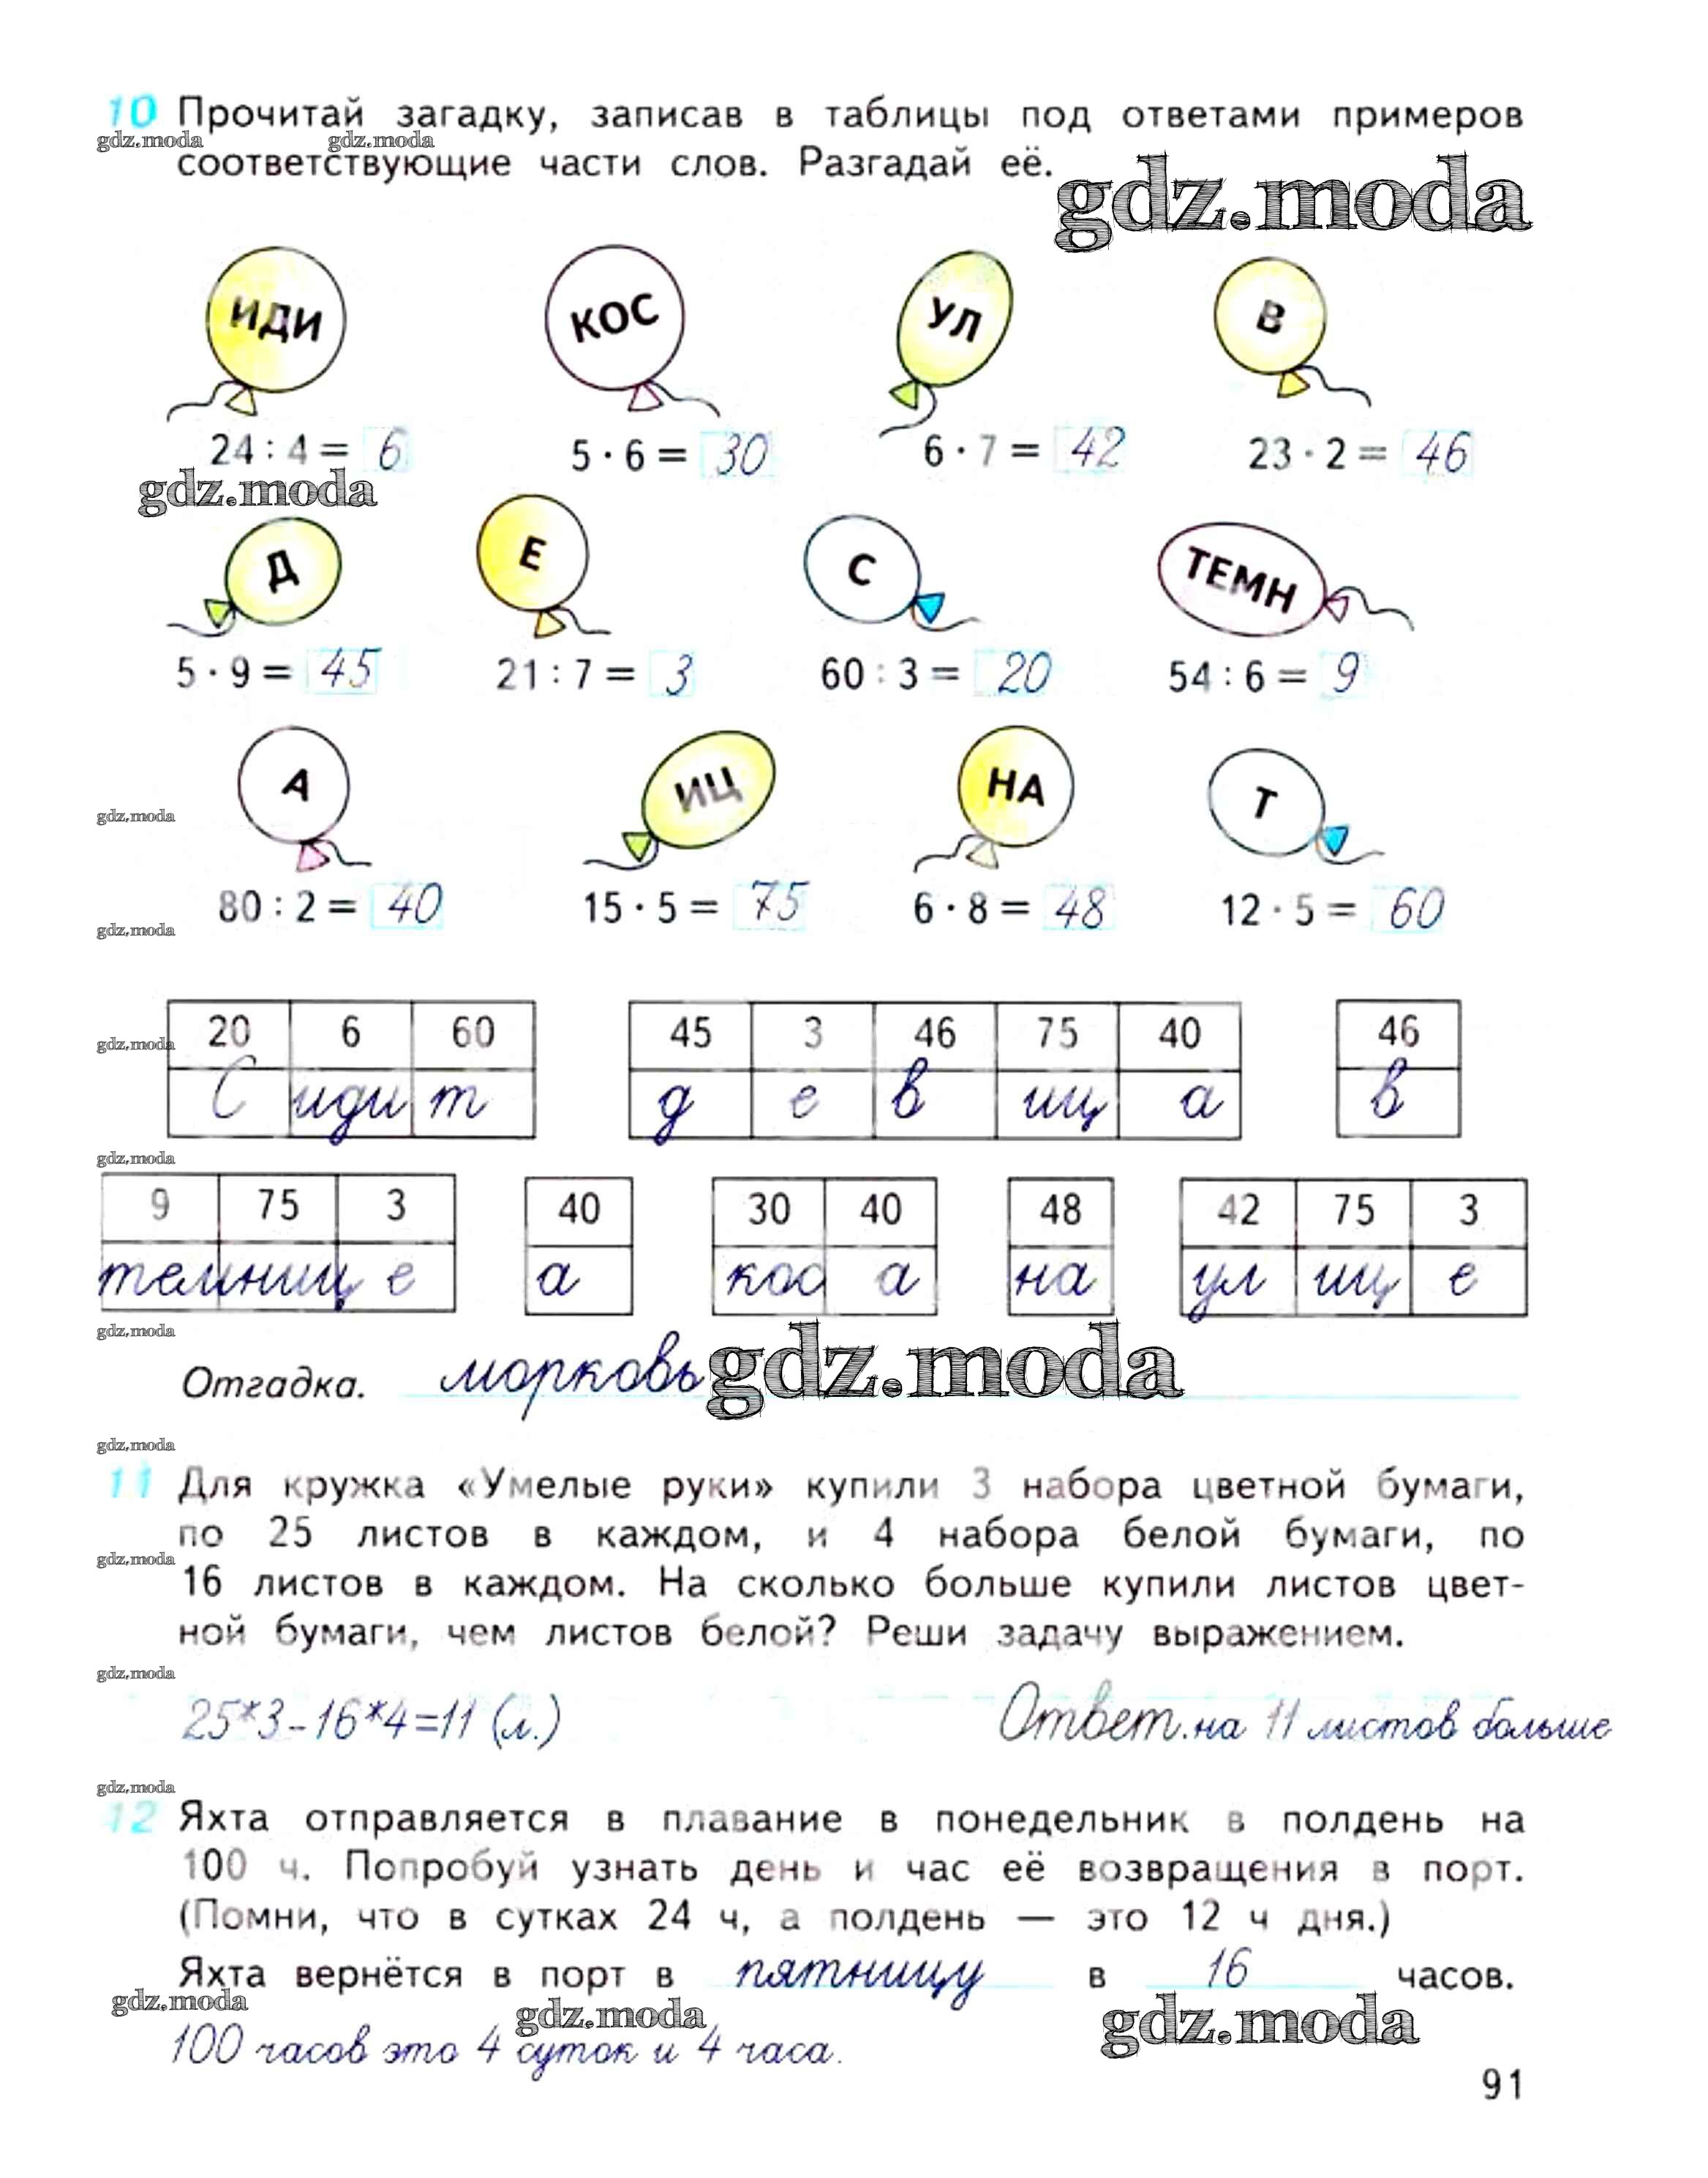 10 Прочитай загадку, записав в таблицы под ответами примеров
gdz.moda gdz.moda
соответствующие части слов. Разгадай её.
gdz.moda
ИДИ КОС УЛ В
24 : 4 = 6 5 · 6 = 30 6 · 7 = 42 23 · 2 = 46
gdz.moda
Д Е С ТЕМН
5 · 9 = 45 21 : 7 = 3 60 : 3 = 20 54 : 6 = 9
А ИЦ НА Т
gdz.moda
80 : 2 = 40 15 · 5 = 75 6 · 8 = 48 12 · 5 = 60
gdz.moda
20 6 60 45 3 46 75 40 46
gdz.moda
С иди т д е в иц а в
gdz.moda
9 75 3 40 30 40 48 42 75 3
темн иц е а кос а на ул иц е
gdz.moda
Отгадка. морковь gdz.moda
gdz.moda
11 Для кружка «Умелые руки» купили 3 набора цветной бумаги,
по 25 листов в каждом, и 4 набора белой бумаги, по
gdz.moda
16 листов в каждом. На сколько больше купили листов цвет-
ной бумаги, чем листов белой? Реши задачу выражением.
gdz.moda
25*3-16*4=11 (л.) Ответ. на 11 листов больше
gdz.moda
12 Яхта отправляется в плавание в понедельник в полдень на
100 ч. Попробуй узнать день и час её возвращения в порт.
(Помни, что в сутках 24 ч, а полдень — это 12 ч дня.)
Яхта вернётся в порт в пятницу в 16 часов.
gdz.moda gdz.moda gdz.moda
100 часов это 4 суток и 4 часа.
91